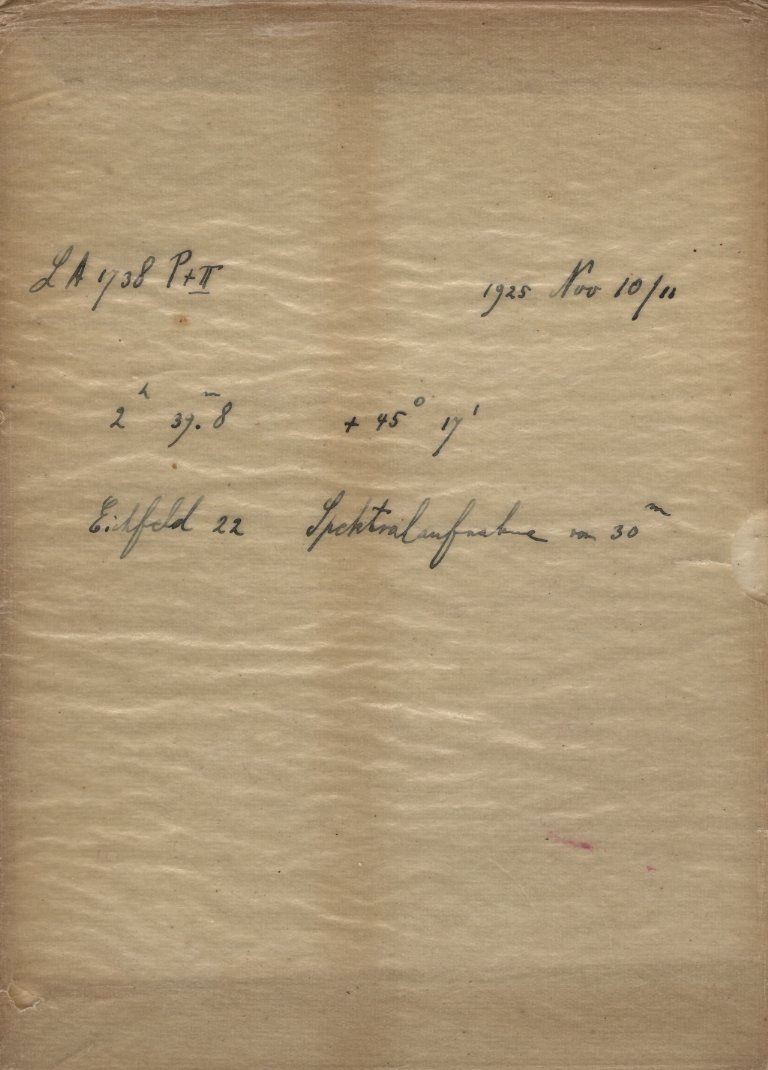 LA 1738 P+II 1925 Nov 10/11
2ʰ 39ᵐ.8 + 45° 17'
Eichfeld 22 Spektralaufnahme von 30ᵐ